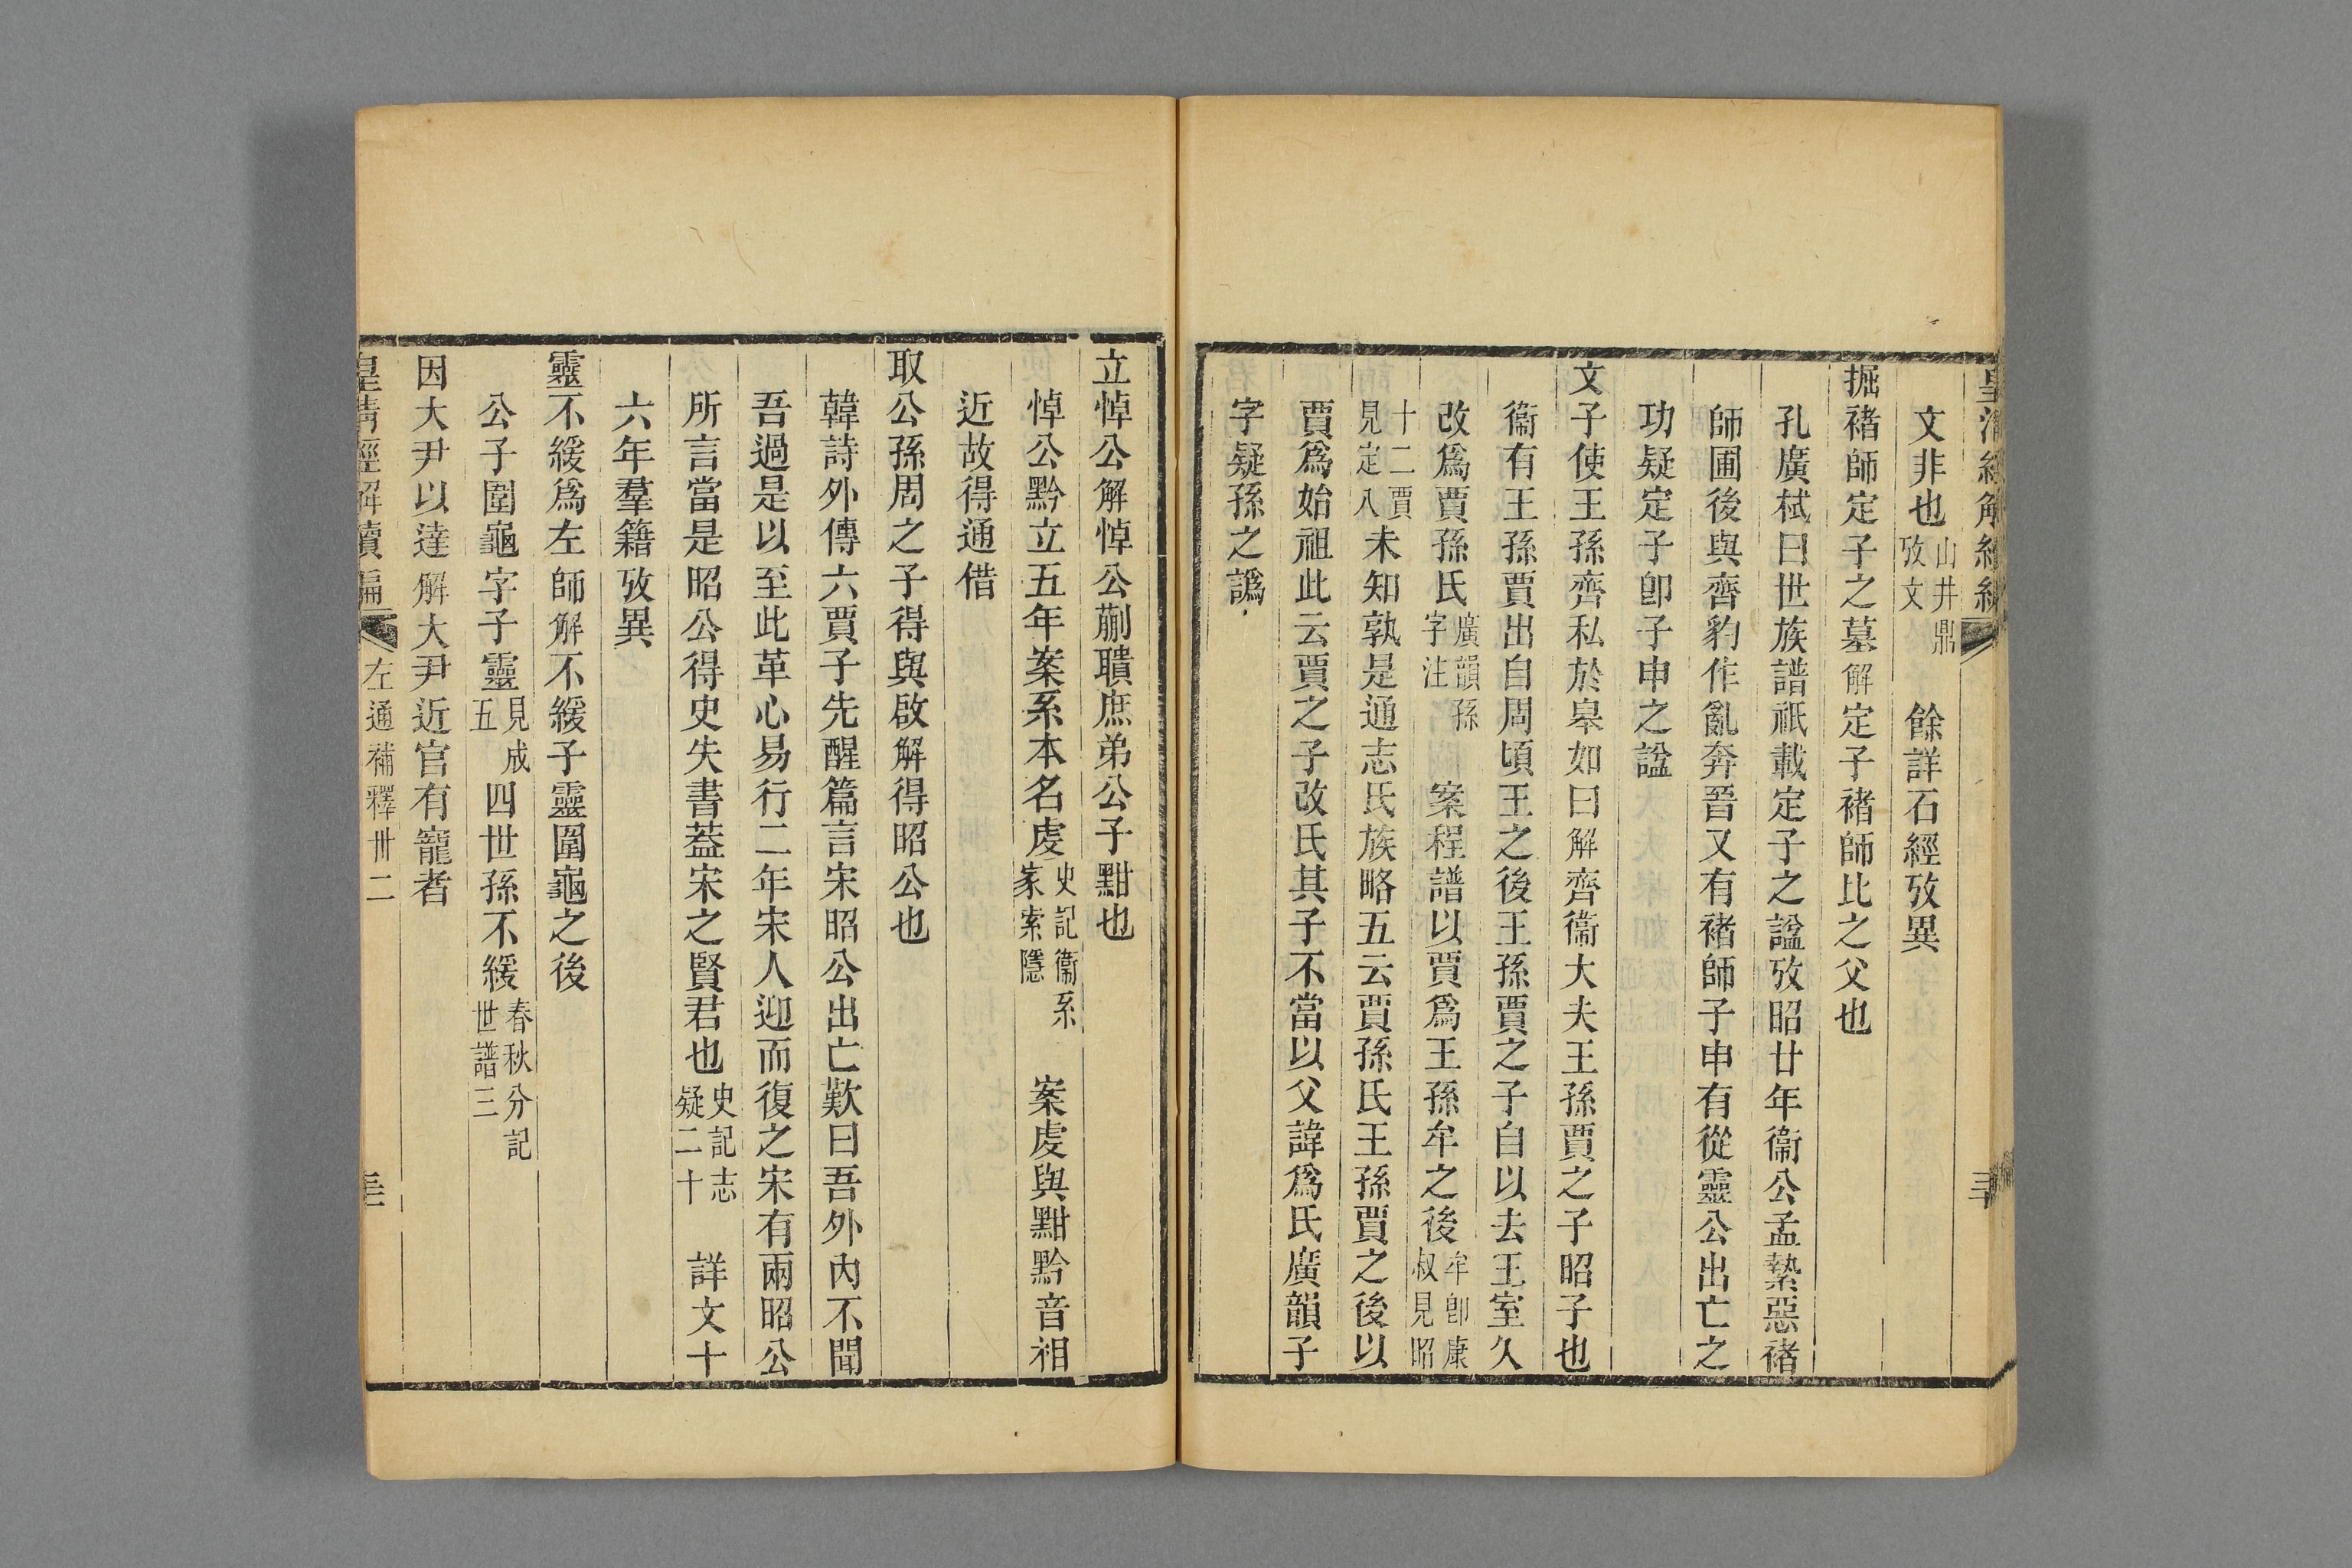 文非也山井鼎攷文餘詳石經攷異
掘褚師定子之墓解定子褚師比之父也
孔廣栻曰世族譜祇載定子之諡攷昭廿年衞公孟縶惡褚
師圃後與齊豹作亂奔晉又有褚師子申有從靈公出亡之
功疑定子卽子申之諡
文子使王孫齊私於皋如曰解齊衞大夫王孫賈之子昭子也
衞有王孫賈出自周頃王之後王孫賈之子自以去王室久
改爲賈孫氏廣韻孫字注案程譜以賈爲王孫牟之後牟卽康叔見昭
十二賈見定八未知孰是通志氏族略五云賈孫氏王孫賈之後以
賈爲始祖此云賈之子改氏其子不當以父諱爲氏廣韻子
字疑孫之譌
立悼公解悼公蒯聵庶弟公子黚也
悼公黔立五年案系本名虔史記衞系家索隱案虔與黚黔音相
近故得通借
取公孫周之子得與啟解得昭公也
韓詩外傳六賈子先醒篇言宋昭公出亡歎曰吾外內不聞
吾過是以至此革心易行二年宋人迎而復之宋有兩昭公
所言當是昭公得史失書葢宋之賢君也史記志疑二十詳文十
六年羣籍攷異
靈不緩爲左師解不緩子靈圍龜之後
公子圍龜字子靈見成五四世孫不緩春秋分記世譜三
因大尹以達解大尹近官有寵者
皇淸經解續編
左通補釋卅二